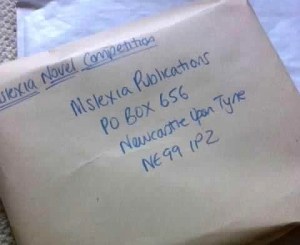 slexia Novel Competition
Mslexia Publications
PO BOX 656
Newcastle Upon Tyne
NE99 1PZ